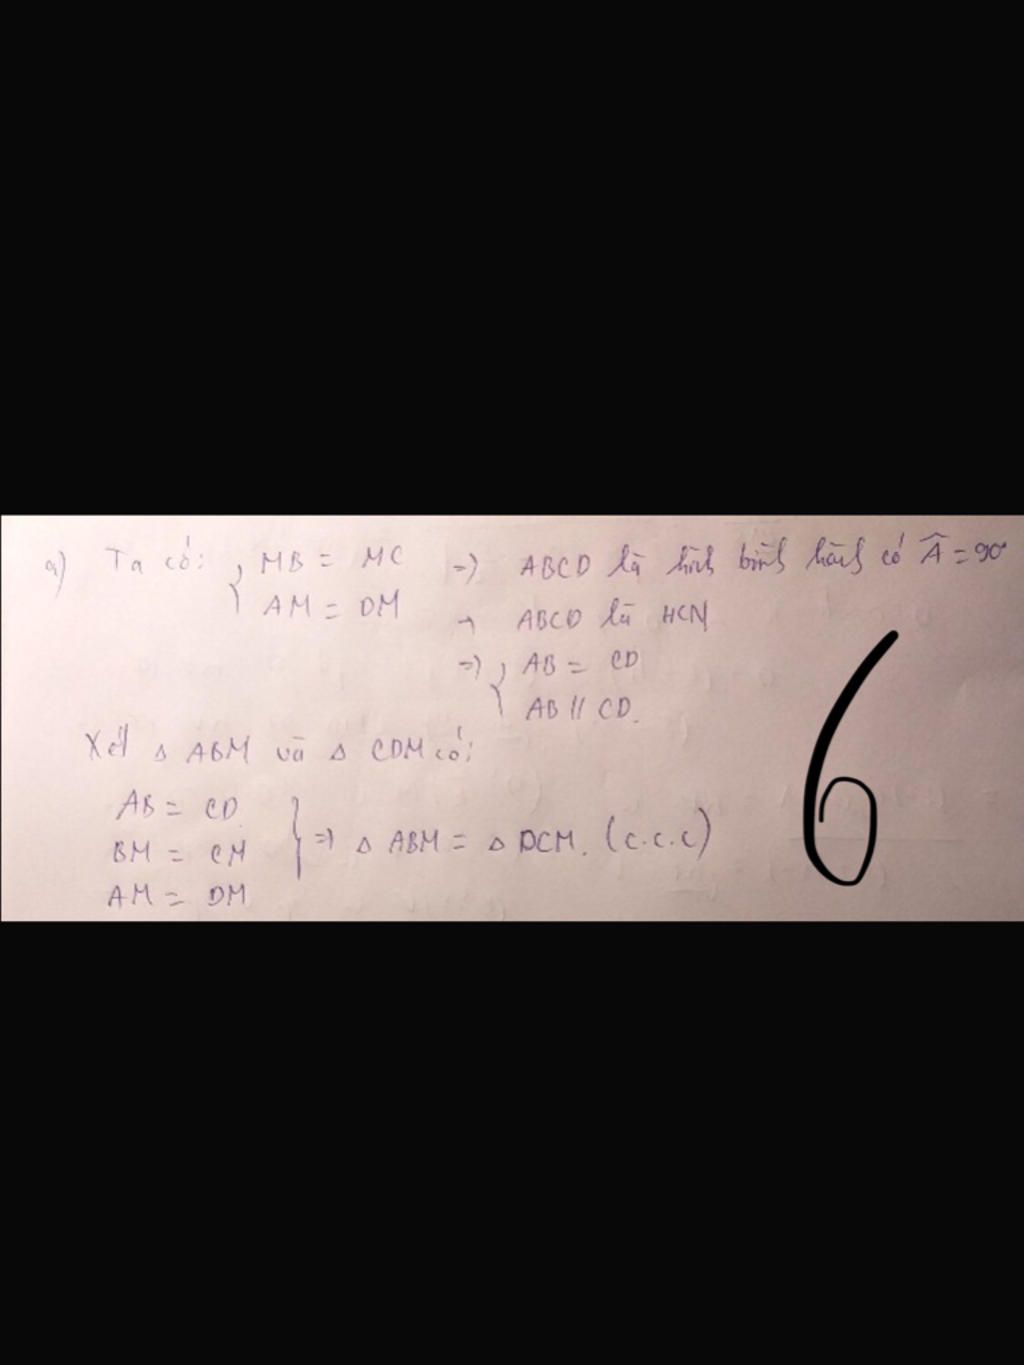 a) Ta có: { MB = MC => ABCD là hình bình hành có Â = 90°
AM = DM → ABCD là HCN
=> { AB = CD
AB // CD.
Xét Δ ABM và Δ CDM có:
AB = CD
BM = CM } => Δ ABM = Δ DCM. (c.c.c)
AM = DM
6